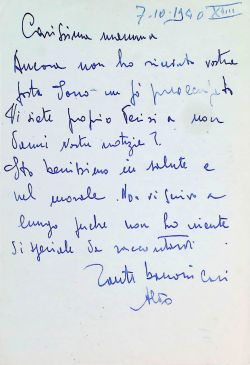 7-10-1940 XVIII
Carissima mamma
Ancora non ho ricevuto vostra
posta Sono un pò preoccupato
Vi siete proprio decisi a non
darmi vostre notizie?
Sto benissimo in salute e
nel morale. Non vi scrivo a
lungo perche non ho niente
di speciale da raccontarvi
Tanti bacioni cari
Aldo